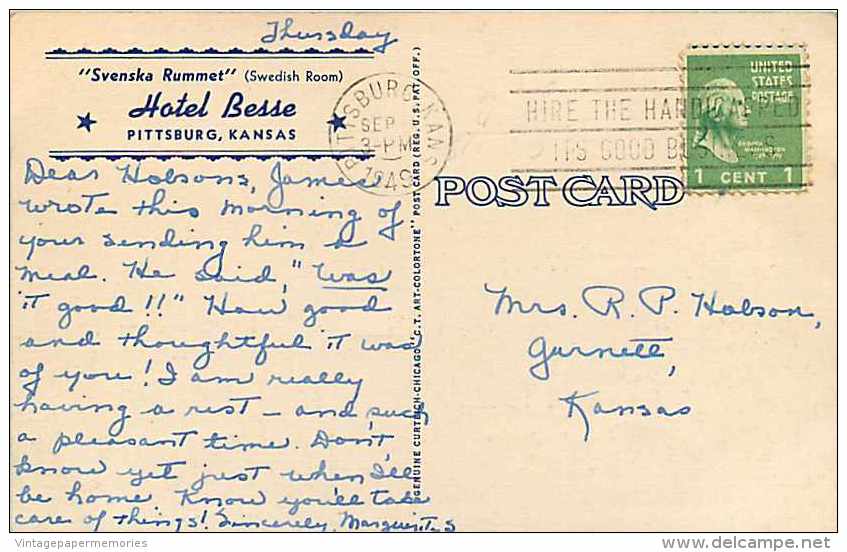 Thursday
"Svenska Rummet" (Swedish Room)
Hotel Besse
PITTSBURG, KANSAS
PITTSBURG, KANS.
SEP
3-PM
1949
HIRE THE HANDICAPPED
ITS GOOD BUSINESS
UNITED
STATES
POSTAGE
1 CENT 1
POST CARD
GENUINE CURTEICH-CHICAGO "C.T. ART-COLORTONE" POST CARD (REG. U.S. PAT. OFF.)
Dear Hobsons, James
wrote this morning of
your sending him a
meal. He said, "Was
it good!!" How good
and thoughtful it was
of you! I am really
having a rest – and such
a pleasant time. Don't
know yet just when I'll
be home. Know you'll take
care of things! Sincerely, Marguerite S
Mrs. R. P. Hobson,
Garnett,
Kansas
Vintagepapermemories
delcampe.net